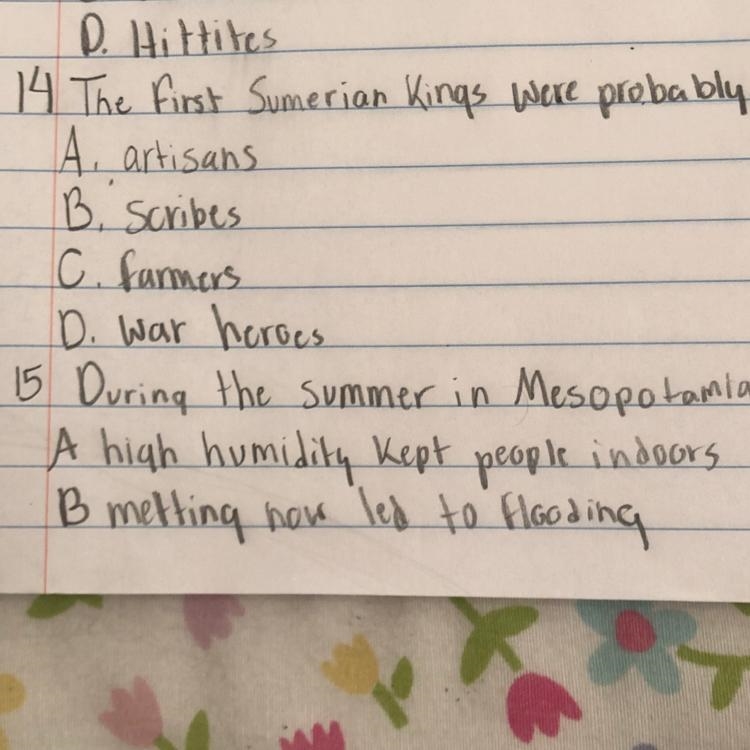 D. Hittites
14 The first Sumerian Kings were probably
A. artisans
B. scribes
C. farmers
D. war heroes
15 During the summer in Mesopotamia
A high humidity kept people indoors
B melting now led to flooding